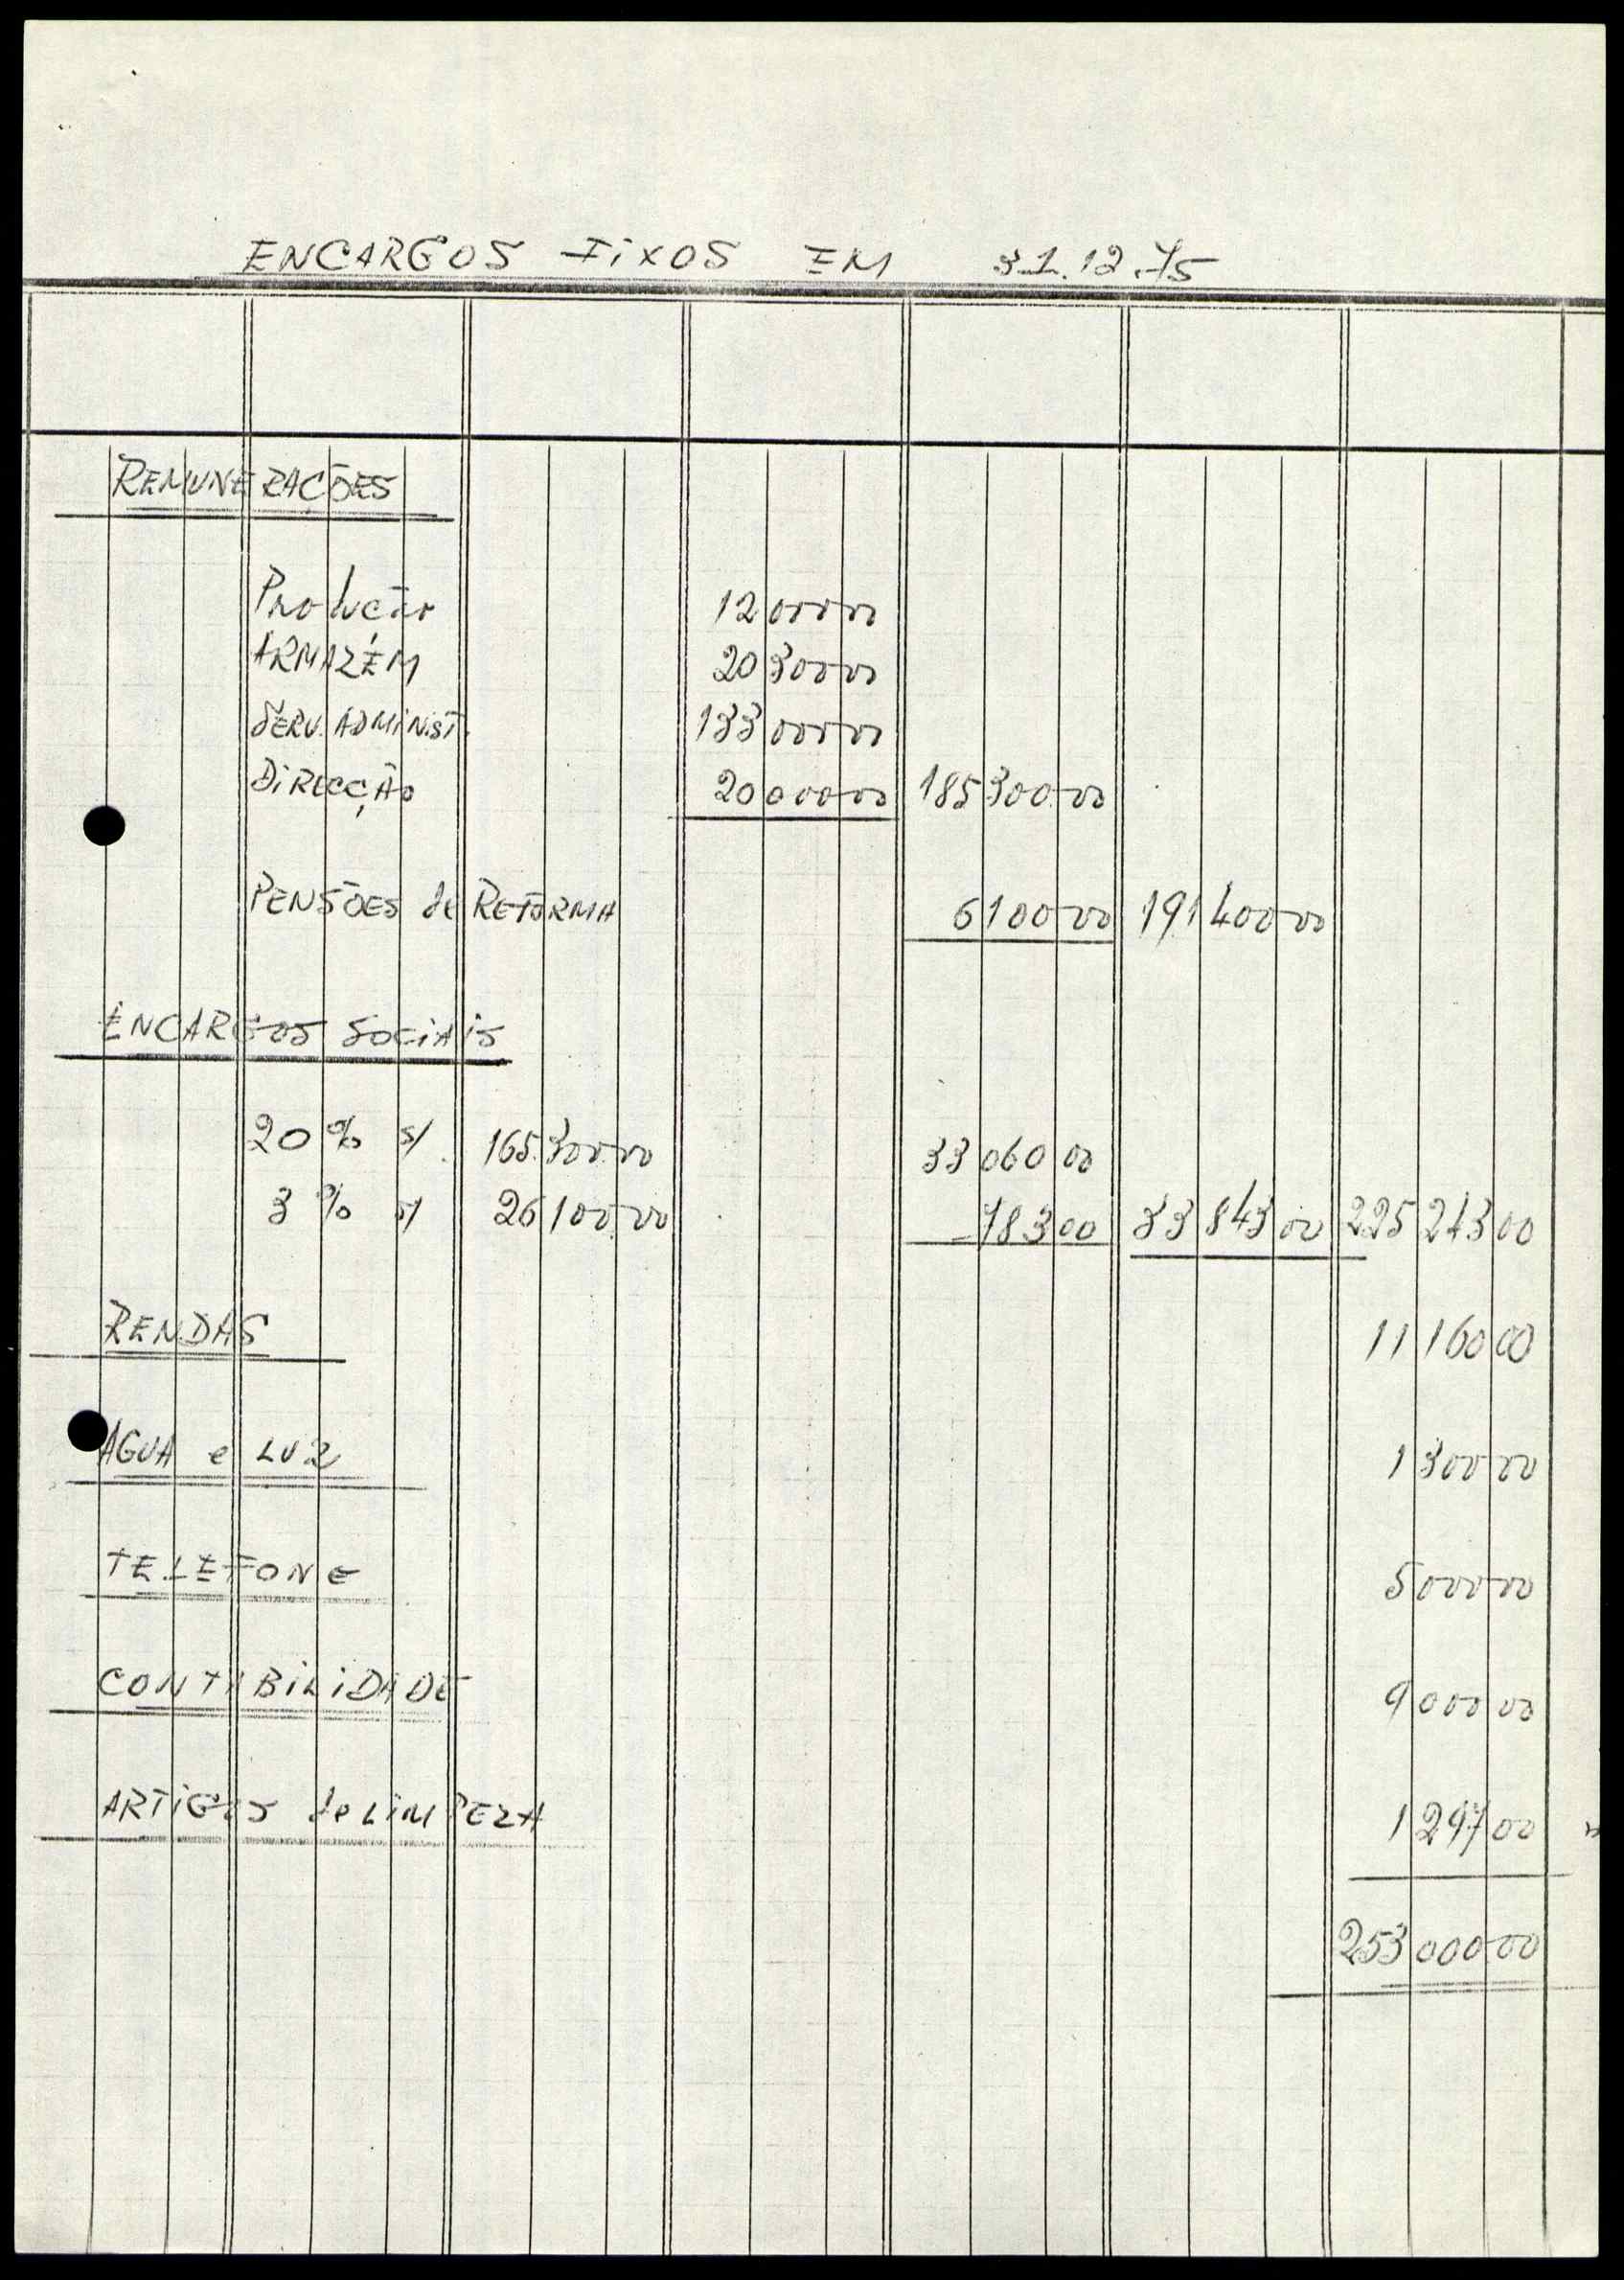 ENCARGOS FIXOS EM 31.12.75
REMUNERAÇÕES
Producão 12 000 00
ARMAZÉM 20 300 00
SERV. ADMINIST. 133 000 00
DIRECÇÃO 20 000 00 185 300 00
PENSÕES de REFORMA 6 100 00 191 400 00
ENCARGOS SOCIAIS
20 % s/ 165.300.00 33 060 00
3 % s/ 26 100.00 783 00 33 843 00 225 243 00
RENDAS 11 160 00
AGUA e LUZ 1 300 00
TELEFONE 5 000 00
CONTABILIDADE 9 000 00
ARTIGOS de LIMPEZA 1 297 00
253 000 00